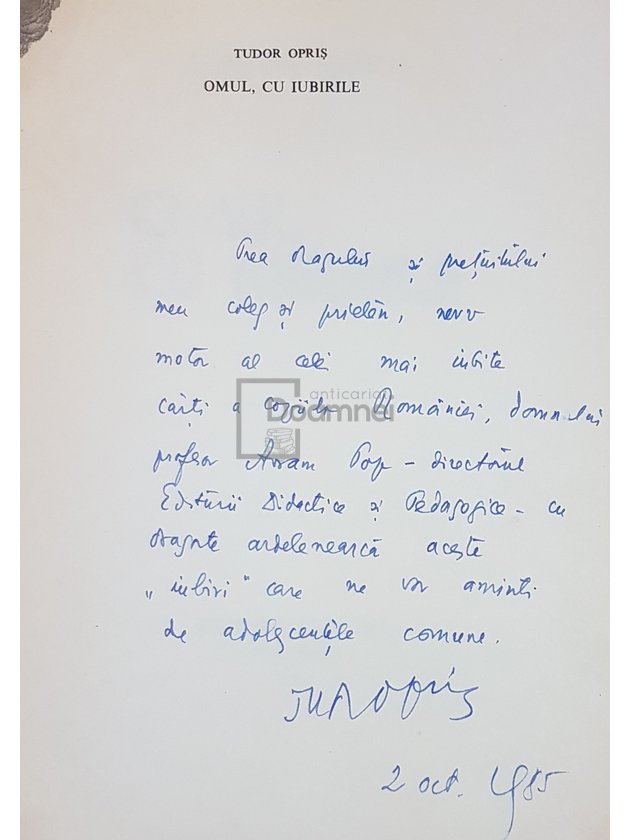 TUDOR OPRIȘ
OMUL, CU IUBIRILE
Prea dragului și prețuitului
meu coleg și prieten, nerv
motor al celei mai iubite
anticariat
Doamnei
cărți a copiilor României, domnului
profesor Avram Pop – directorul
Editurii Didactice și Pedagogice – cu
dragoste ardelenească aceste
„iubiri" care ne vor aminti
de adolescențele comune.
Tudor Opriș
2 oct. 1985